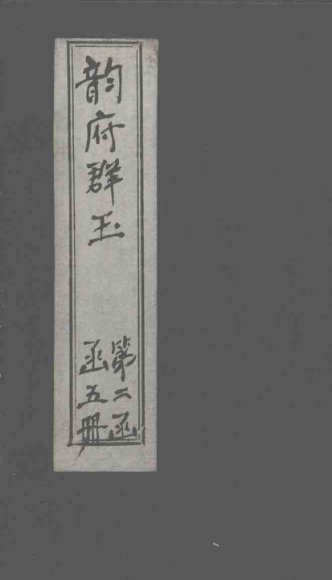 韵府群玉
第二函
函五册